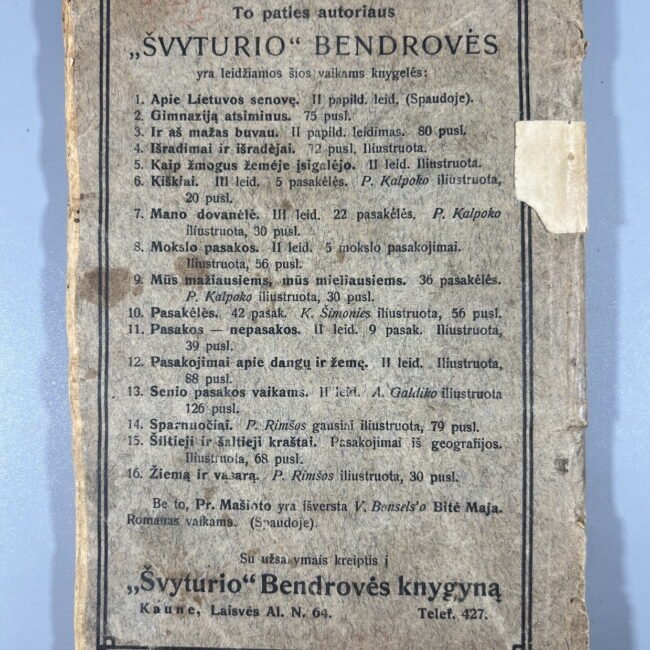 To paties autoriaus
„ŠVYTURIO“ BENDROVĖS
yra leidžiamos šios vaikams knygelės:
1. Apie Lietuvos senovę. II papild. leid. (Spaudoje).
2. Gimnaziją atsiminus. 75 pusl.
3. Ir aš mažas buvau. II papild. leidimas. 80 pusl.
4. Išradimai ir išradėjai. 72 pusl. Iliustruota.
5. Kaip žmogus žemėje įsigalėjo. II leid. Iliustruota.
6. Kiškiai. III leid. 5 pasakėlės. P. Kalpoko iliustruota,
20 pusl.
7. Mano dovanėlė. III leid. 22 pasakėlės. P. Kalpoko
iliustruota, 30 pusl.
8. Mokslo pasakos. II leid. 5 mokslo pasakojimai.
Iliustruota, 56 pusl.
9. Mūs mažiausiems, mūs mieliausiems. 36 pasakėlės.
P. Kalpoko iliustruota, 30 pusl.
10. Pasakėlės. 42 pasak. K. Šimonies iliustruota, 56 pusl.
11. Pasakos — nepasakos. II leid. 9 pasak. Iliustruota,
39 pusl.
12. Pasakojimai apie dangų ir žemę. II leid. Iliustruota,
88 pusl.
13. Senio pasakos vaikams. II leid. A. Galdiko iliustruota
126 pusl.
14. Sparnuočiai. P. Rimšos gausiai iliustruota, 79 pusl.
15. Šiltieji ir šaltieji kraštai. Pasakojimai iš geografijos.
Iliustruota, 68 pusl.
16. Žiemą ir vasarą. P. Rimšos iliustruota, 30 pusl.
Be to, Pr. Mašioto yra išversta V. Bonsels'o Bitė Maja.
Romanas vaikams. (Spaudoje).
Su užsakymais kreiptis į
„Švyturio“ Bendrovės knygyną
Kaune, Laisvės Al. N. 64. Telef. 427.